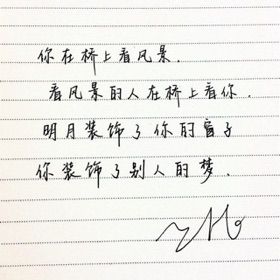 你在桥上看风景.
看风景的人在桥上看你.
明月装饰了你的窗子
你装饰了别人的梦.